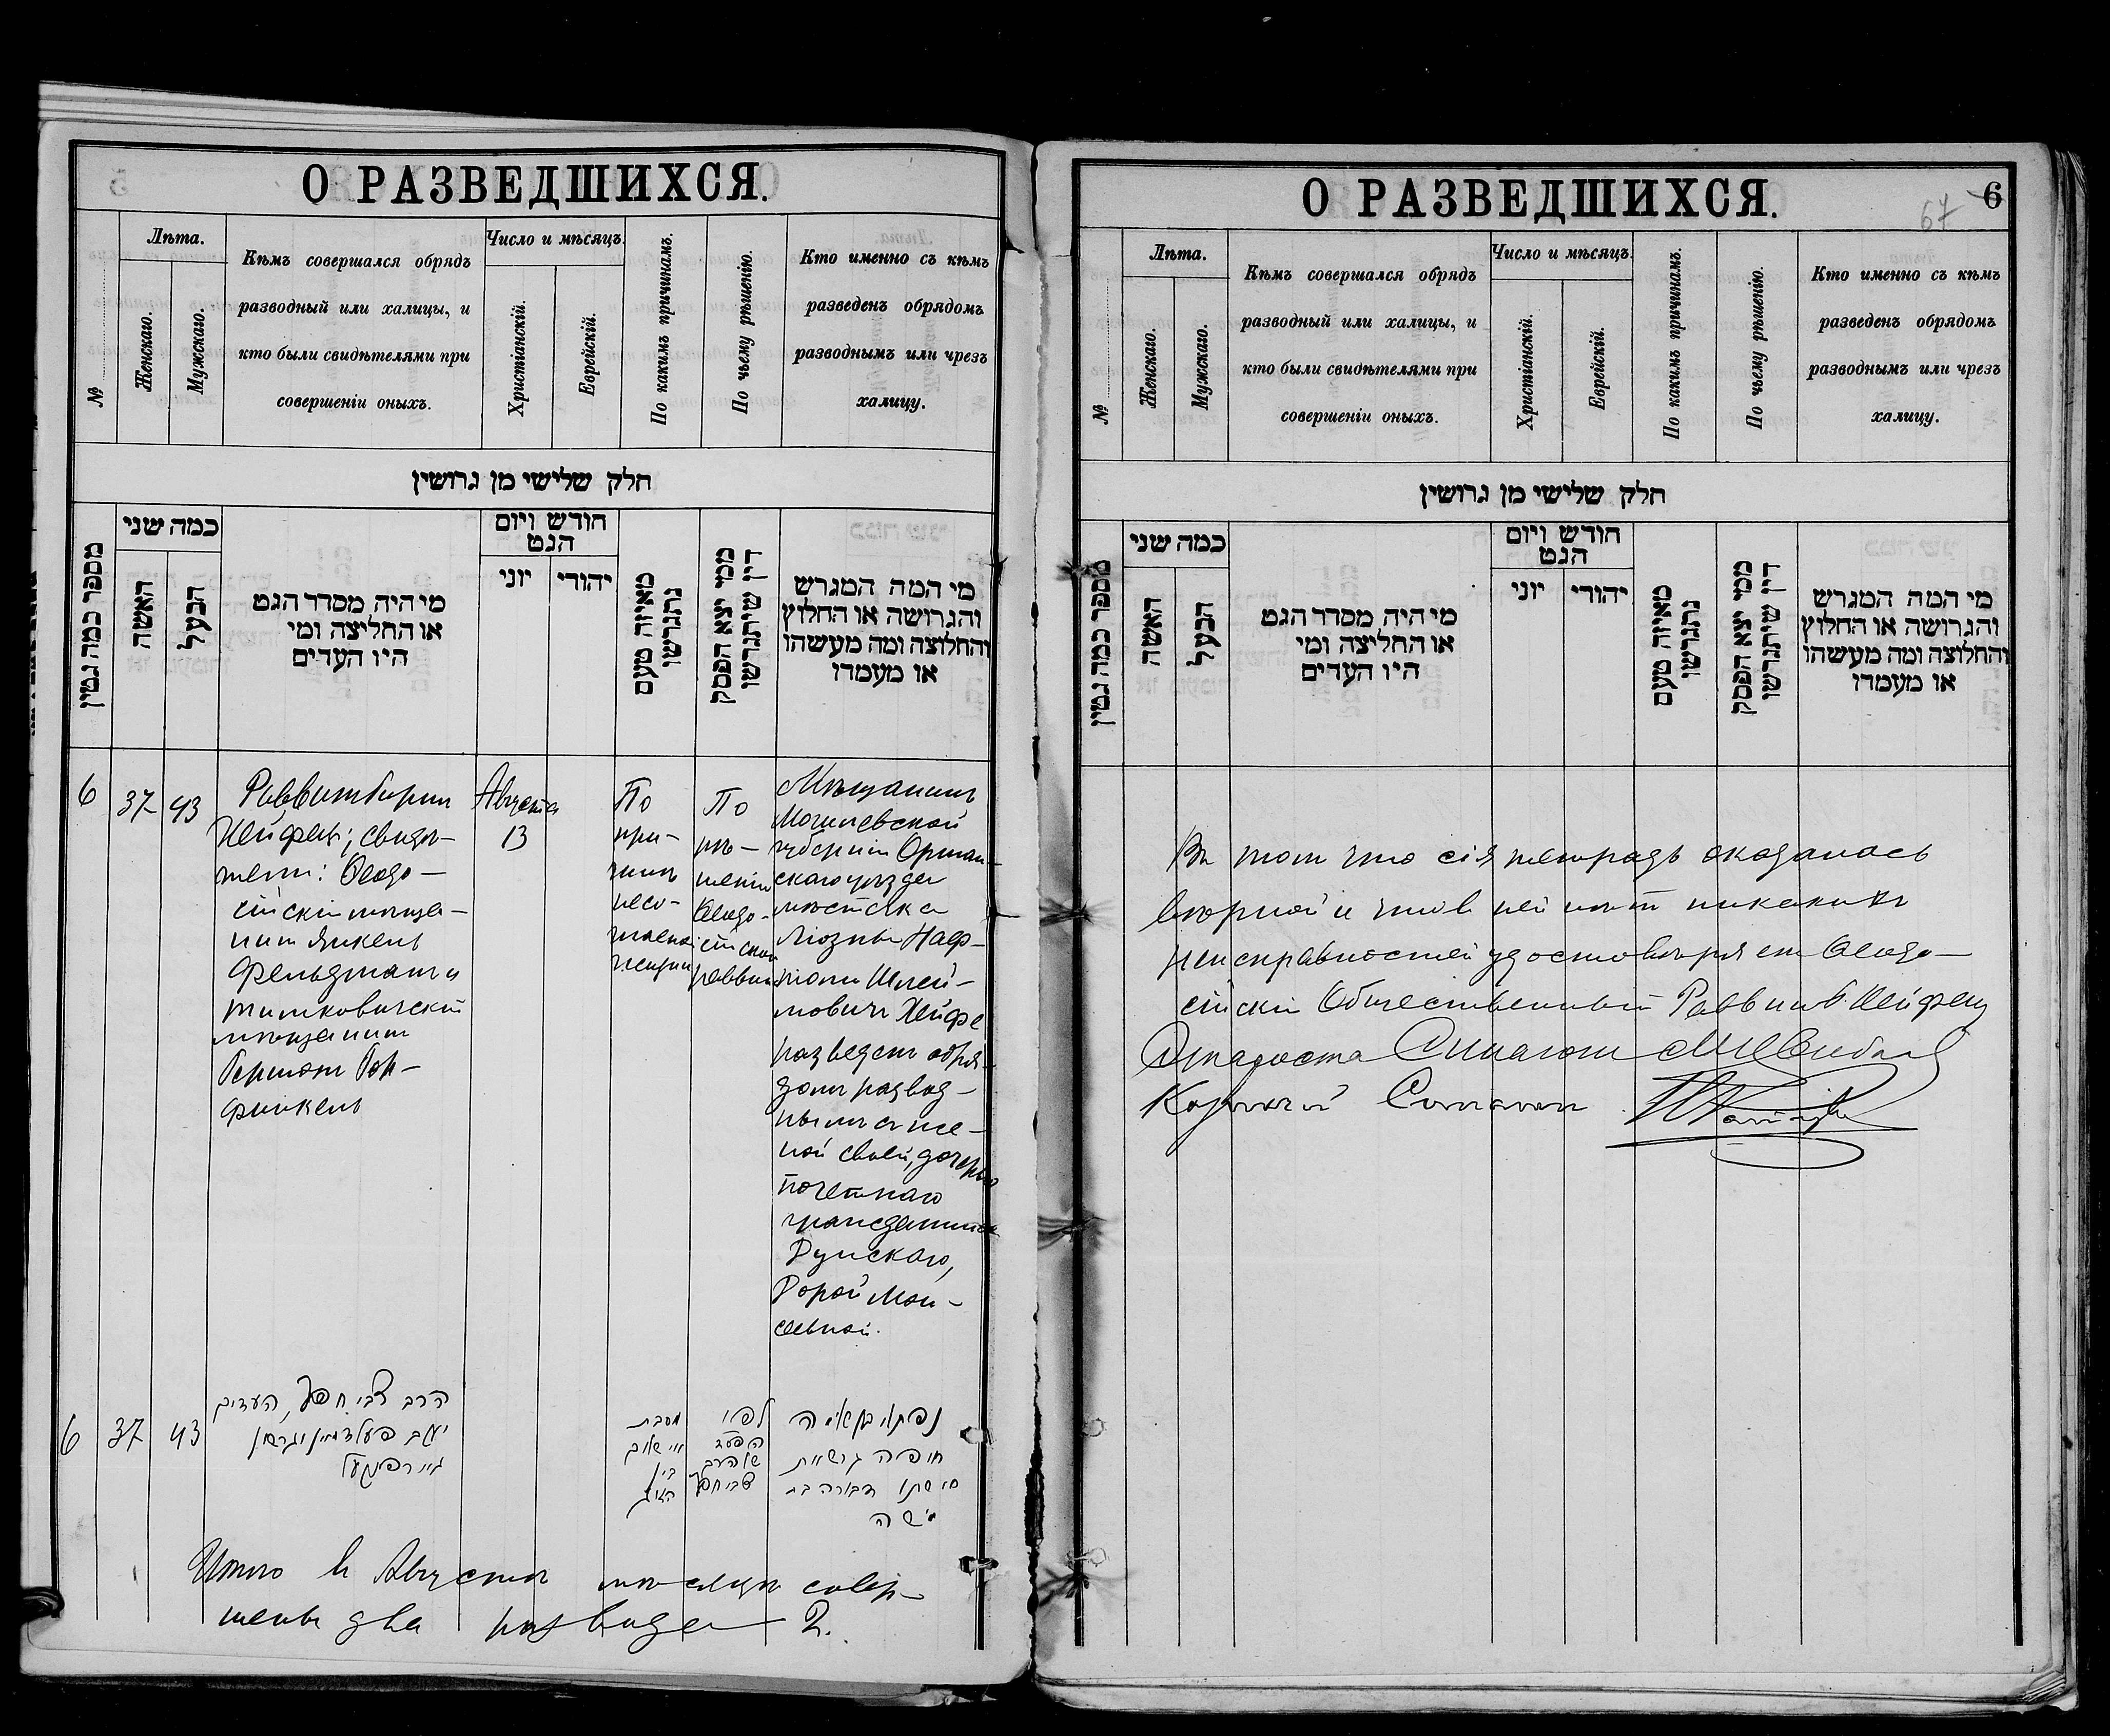 О РАЗВЕДШИХСЯ.
№
Лѣта.
Женскаго.
Мужскаго.
Кѣмъ совершался обрядъ
разводный или халицы, и
кто были свидѣтелями при
совершеніи оныхъ.
Число и мѣсяцъ.
Христіанскій.
Еврейскій.
По какимъ причинамъ.
По чьему рѣшенію.
Кто именно съ кѣмъ
разведенъ обрядомъ
разводнымъ или чрезъ
халицу.
חלק שלישי מן גרושין
מספר כמה גטין
כמה שני
האשה
הבעל
מי היה מסדר הגט
או החליצה ומי
היו העדים
חודש ויום
הגט
יוני
יהודי
מאיזה טעם
נתגרשו
ממי יצא הפסק
דין שיתגרשו
מי המה המגרש
והגרושה או החלוץ
והחלוצה ומה מעשהו
או מעמדו
6
37
43
Раввинъ
Хейфецъ; свидѣ-
тели: Ѳеодо-
сійскій мѣща-
нинъ Янкель
Фельдманъ и
мѣщанинъ
Гершонъ Гор-
финкель
Августа
13
По
при-
чинѣ
несо-
По
рѣ-
шенію
Ѳеодо-
сійскаго
раввина
Мѣщанинъ
Могилевской
губерніи Оршан-
скаго уѣзда
мѣстечка
Ліозны Наф-
толи Шлей-
мовичъ Хейфе
разведенъ обря-
домъ развод-
нымъ съ же-
ной своей, дочерью
почетнаго
гражданина
Дорой Мои-
сеевной.
6
37
43
הרב צבי חפץ, העדים
יעקב פעלדמאן וגרשון
גוירפינקעל
מסבת
אי שלום
בין
הזוג
לפי
של הרב
צבי חפץ
דבורה בת
משה
Итого въ Августѣ мѣсяцѣ совер-
шены два развода 2.
О РАЗВЕДШИХСЯ.
67
6
№
Лѣта.
Женскаго.
Мужскаго.
Кѣмъ совершался обрядъ
разводный или халицы, и
кто были свидѣтелями при
совершеніи оныхъ.
Число и мѣсяцъ.
Христіанскій.
Еврейскій.
По какимъ причинамъ.
По чьему рѣшенію.
Кто именно съ кѣмъ
разведенъ обрядомъ
разводнымъ или чрезъ
халицу.
חלק שלישי מן גרושין
מספר כמה גטין
כמה שני
האשה
הבעל
מי היה מסדר הגט
או החליצה ומי
היו העדים
חודש ויום
הגט
יוני
יהודי
מאיזה טעם
נתגרשו
ממי יצא הפסק
דין שיתגרשו
מי המה המגרש
והגרושה או החלוץ
והחלוצה ומה מעשהו
או מעמדו
Въ томъ что сія тетрадь оказалась
вѣрной и что въ ней нѣтъ никакихъ
неисправностей удостовѣряетъ Ѳеодо-
сійскій Общественный Раввинъ Б. Хейфецъ
Староста Синагоги